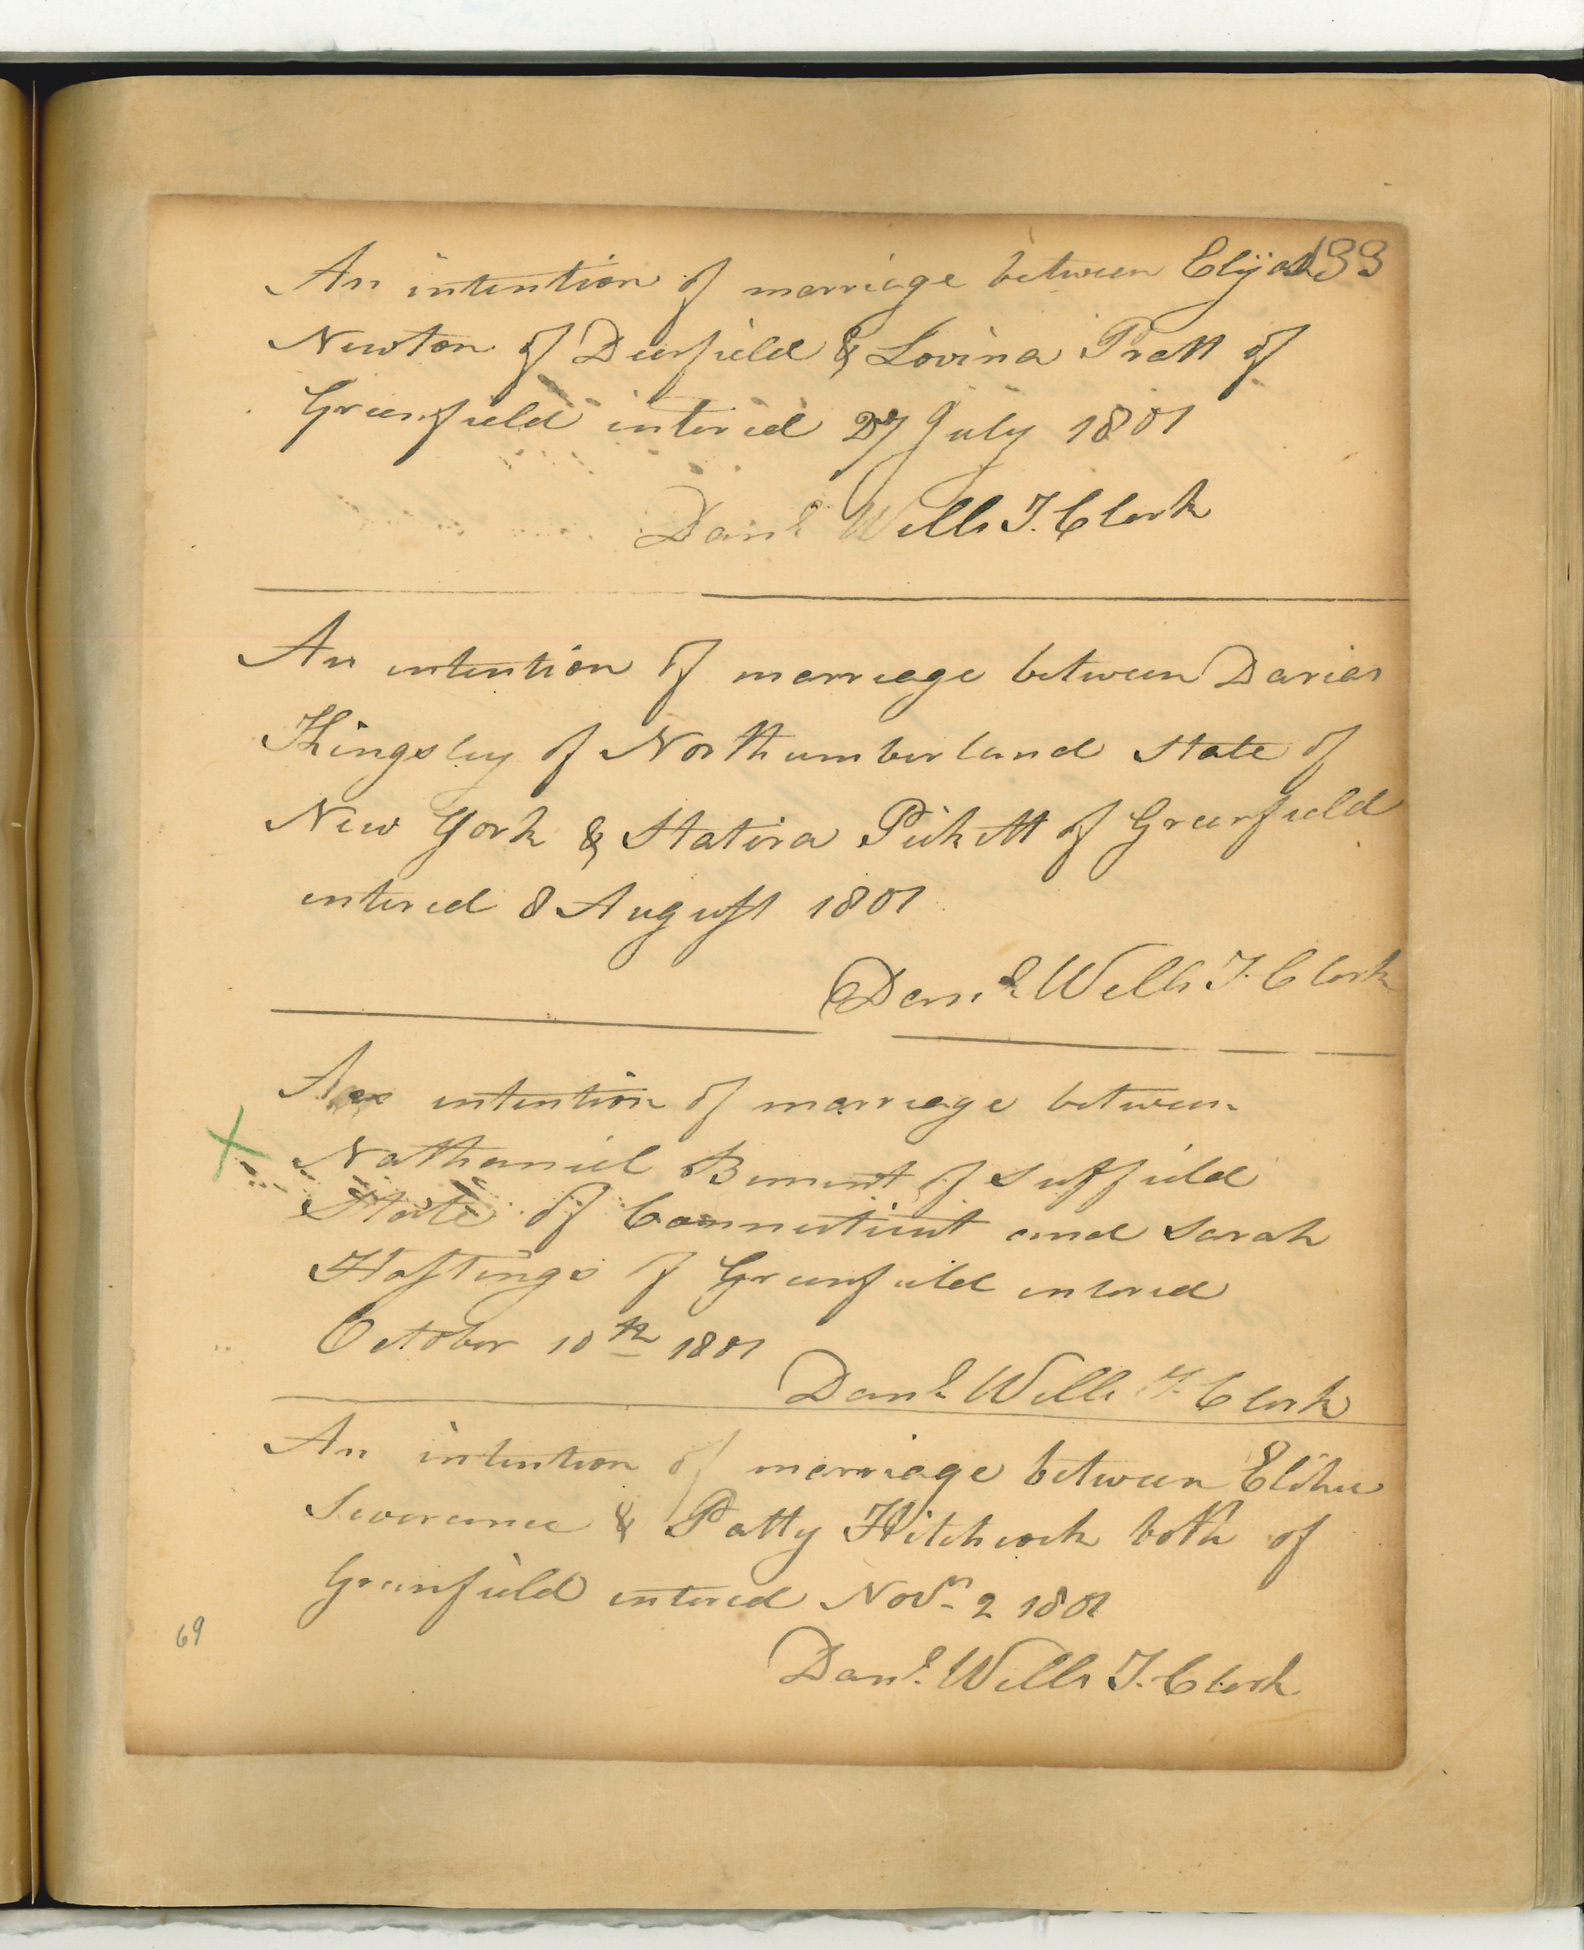 133
An intention of marriage between Elijah
Newton of Deerfield & Lovina Pratt of
Greenfield entered 27 July 1801
Danl Wells T. Clerk
An intention of marriage between Darias
Kingsley of Northumberland State of
New York & Statira Pickett of Greenfield
entered 8 August 1801
Danl Wells T. Clerk
An intention of marriage between
X
Nathaniel Bement of Suffield
State of Connecticut and Sarah
Hastings of Greenfield entered
October 10th 1801
Danl Wells T. Clerk
An intention of marriage between Elihu
Severance & Patty Hitchcock both of
Greenfield entered Novm 2 1801
69
Danl. Wells T. Clerk